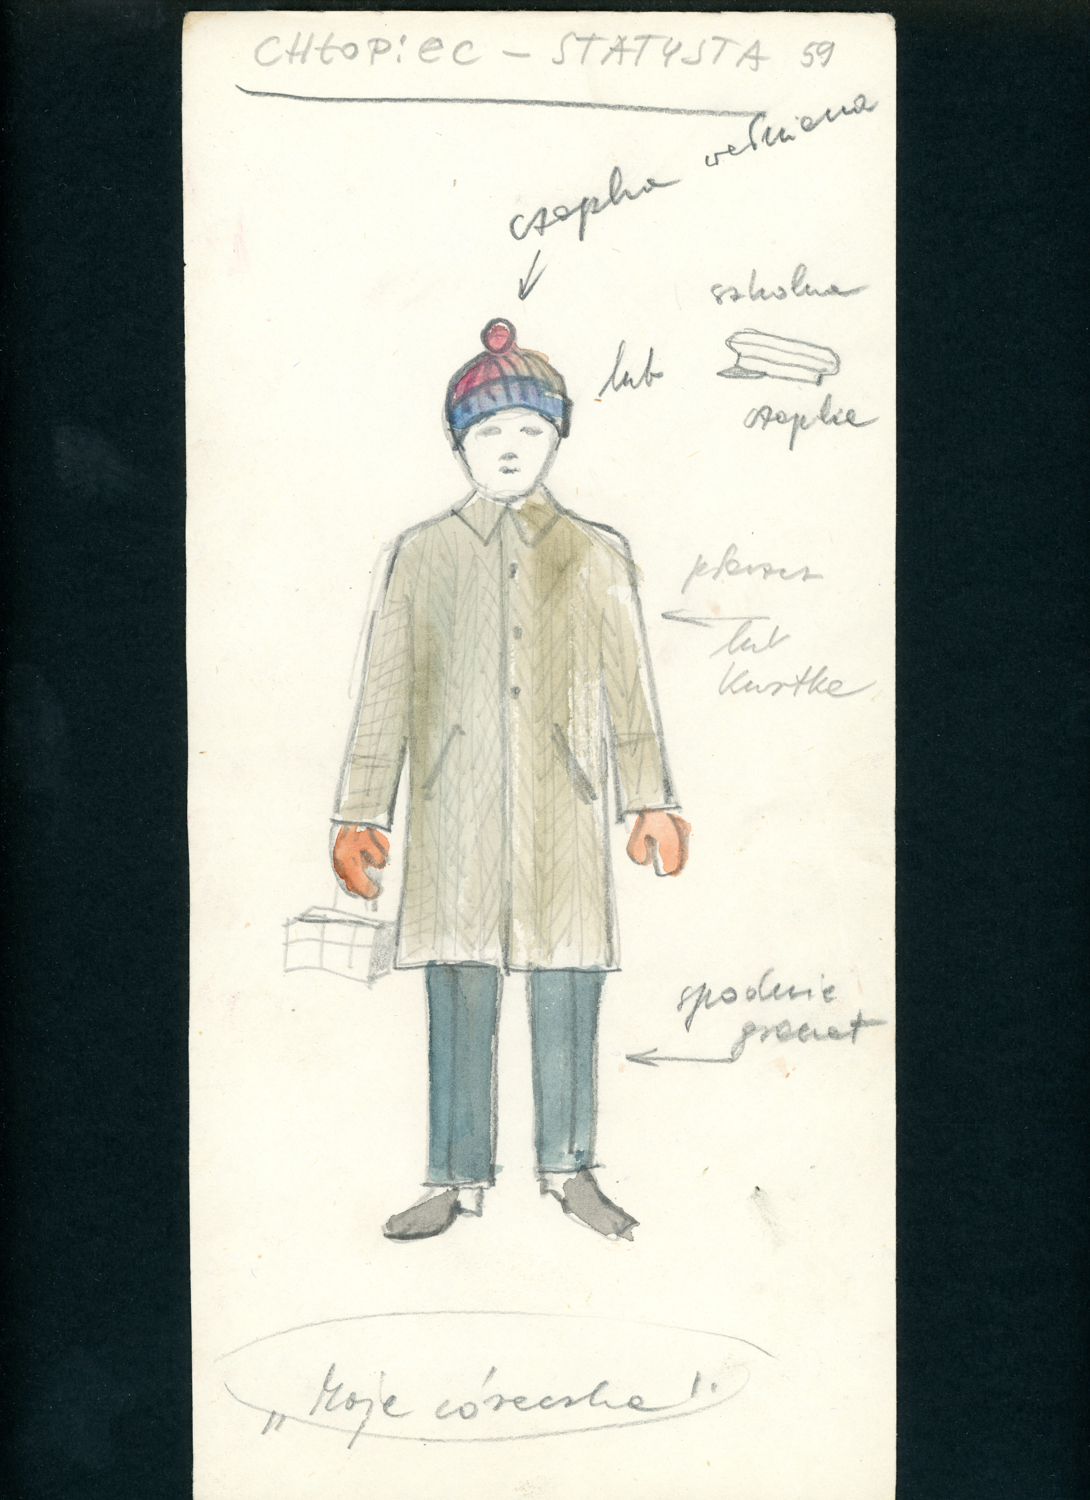 CHŁOPIEC - STATYSTA 59
czapka wełniana
szkolna
lub
czapka
płaszcz
lub
kurtka
spodnie
granat
"Moja córeczka".